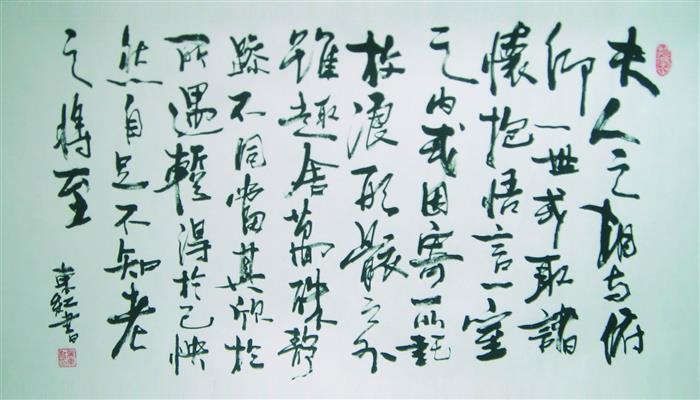 夫人之相与俯
仰一世或取諸
懷抱悟言一室
之内或因寄所託
放浪形骸之外
雖趣舍萬殊靜
躁不同當其欣於
所遇暫得於己怏
然自足不知老
之將至
東紅書